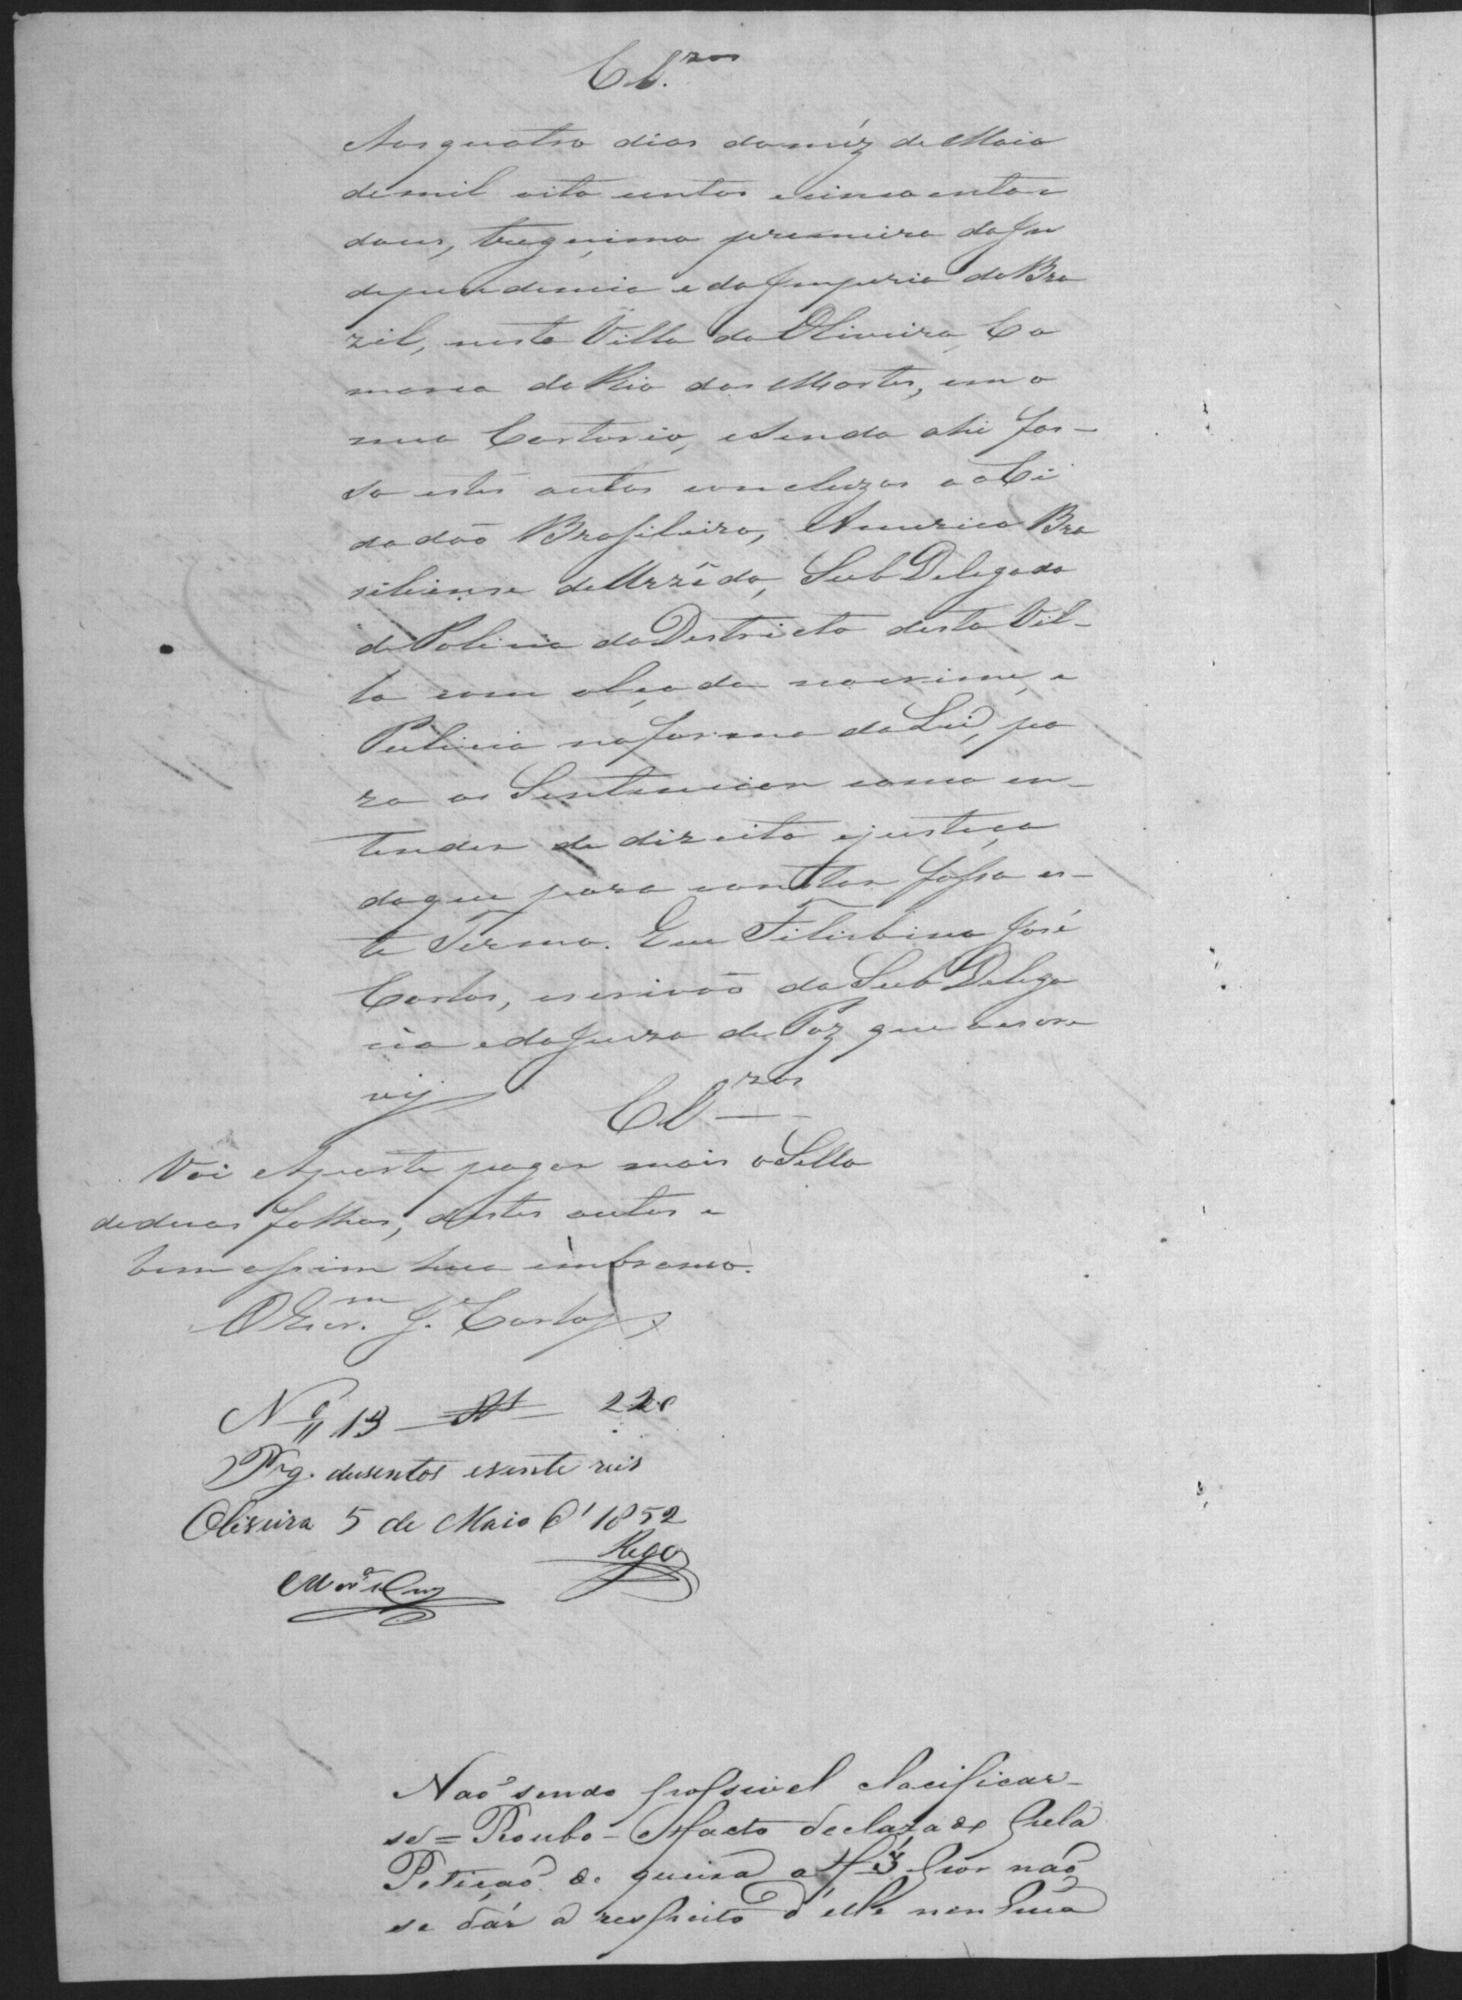 Cl.zos
Aos quatro dias do méz de Maio
de mil oito centos e cincoenta e
dous, tregesimo primeiro da In
dependencia e do Imperio do Bra
zil, nesta Villa da Oliveira, Co
marca do Rio das Mortes, em o
meu Cartorio, e sendo ahi fas-
so estes autos concluzos ao Ci
dadão Brasileiro, Americo Bra
siliense de Urzêdo, Sub Delegado
de Policia do Destricto desta Vil-
la com alçada no crime, e
Pulicia na forma da Lei, pa
ra os Sentenciar como en-
tender de direito e justiça
do que para constar fasso es-
te Termo. Eu Felisbino José
Carlos, escrivão da Sub Delega
cia e do Juizo de Paz que o escre
vij
Cl.zos
Vai Aparte pagar mais o Sello
de duas folhas, destes autos e
bem assim hua em branco.
O Escr.m J.e Carlos
Nº 13 Rs 220
Pg. dusentos e vinte reis
Oliveira 5 de Maio d' 1852
Rego
Não sendo possivel clacificar-
se = Roubo - o facto declarado pela
Petição de queixa a f 3 por não
se dár a respeito d'elle nenhũa